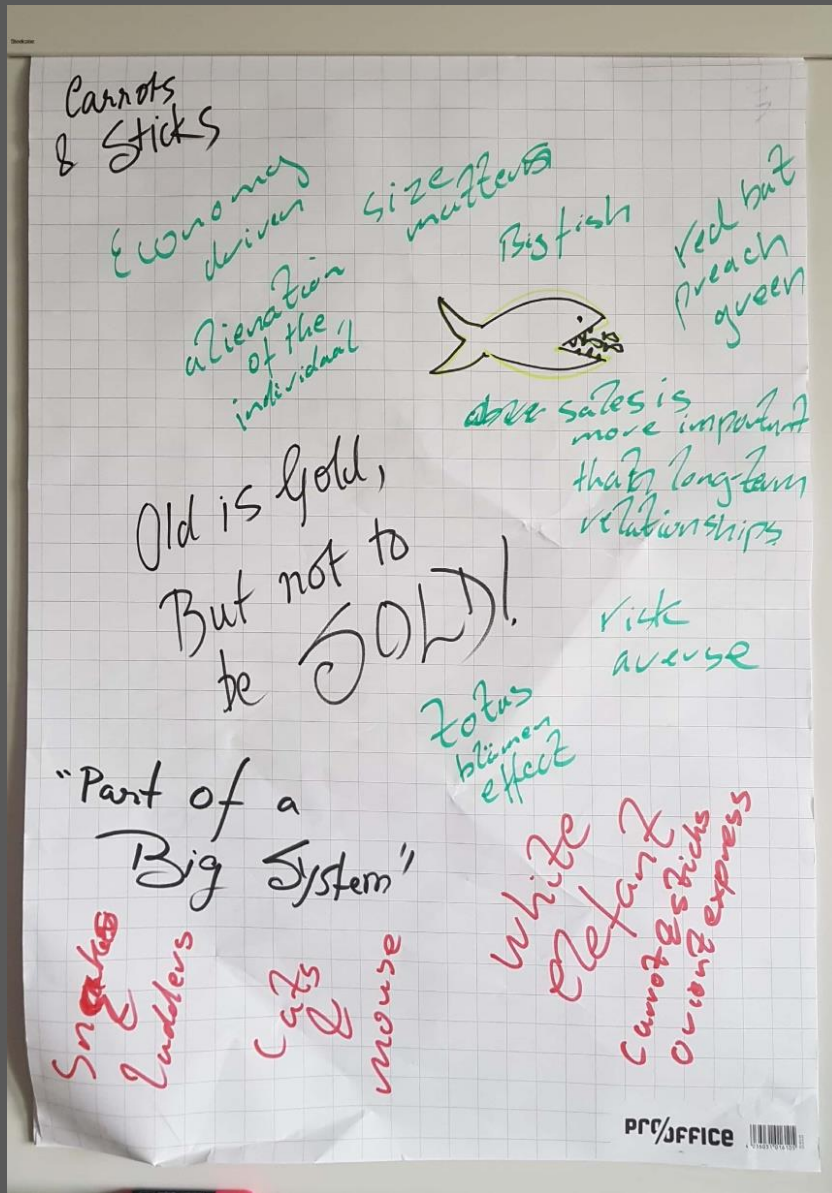 Carrots
& Sticks
Economy
driven
size
matters
Big fish
red but
preach
green
alienation
of the
individual
sales is
more important
than long-term
relationships
Old is Gold,
But not to
be SOLD!
risk
averse
Lotus
blumen
effect
"Part of a
Big System"
Snakes
&
Ladders
Cats
&
mouse
White
elefant
Carrot & sticks
Orient express
PRO/OFFICE